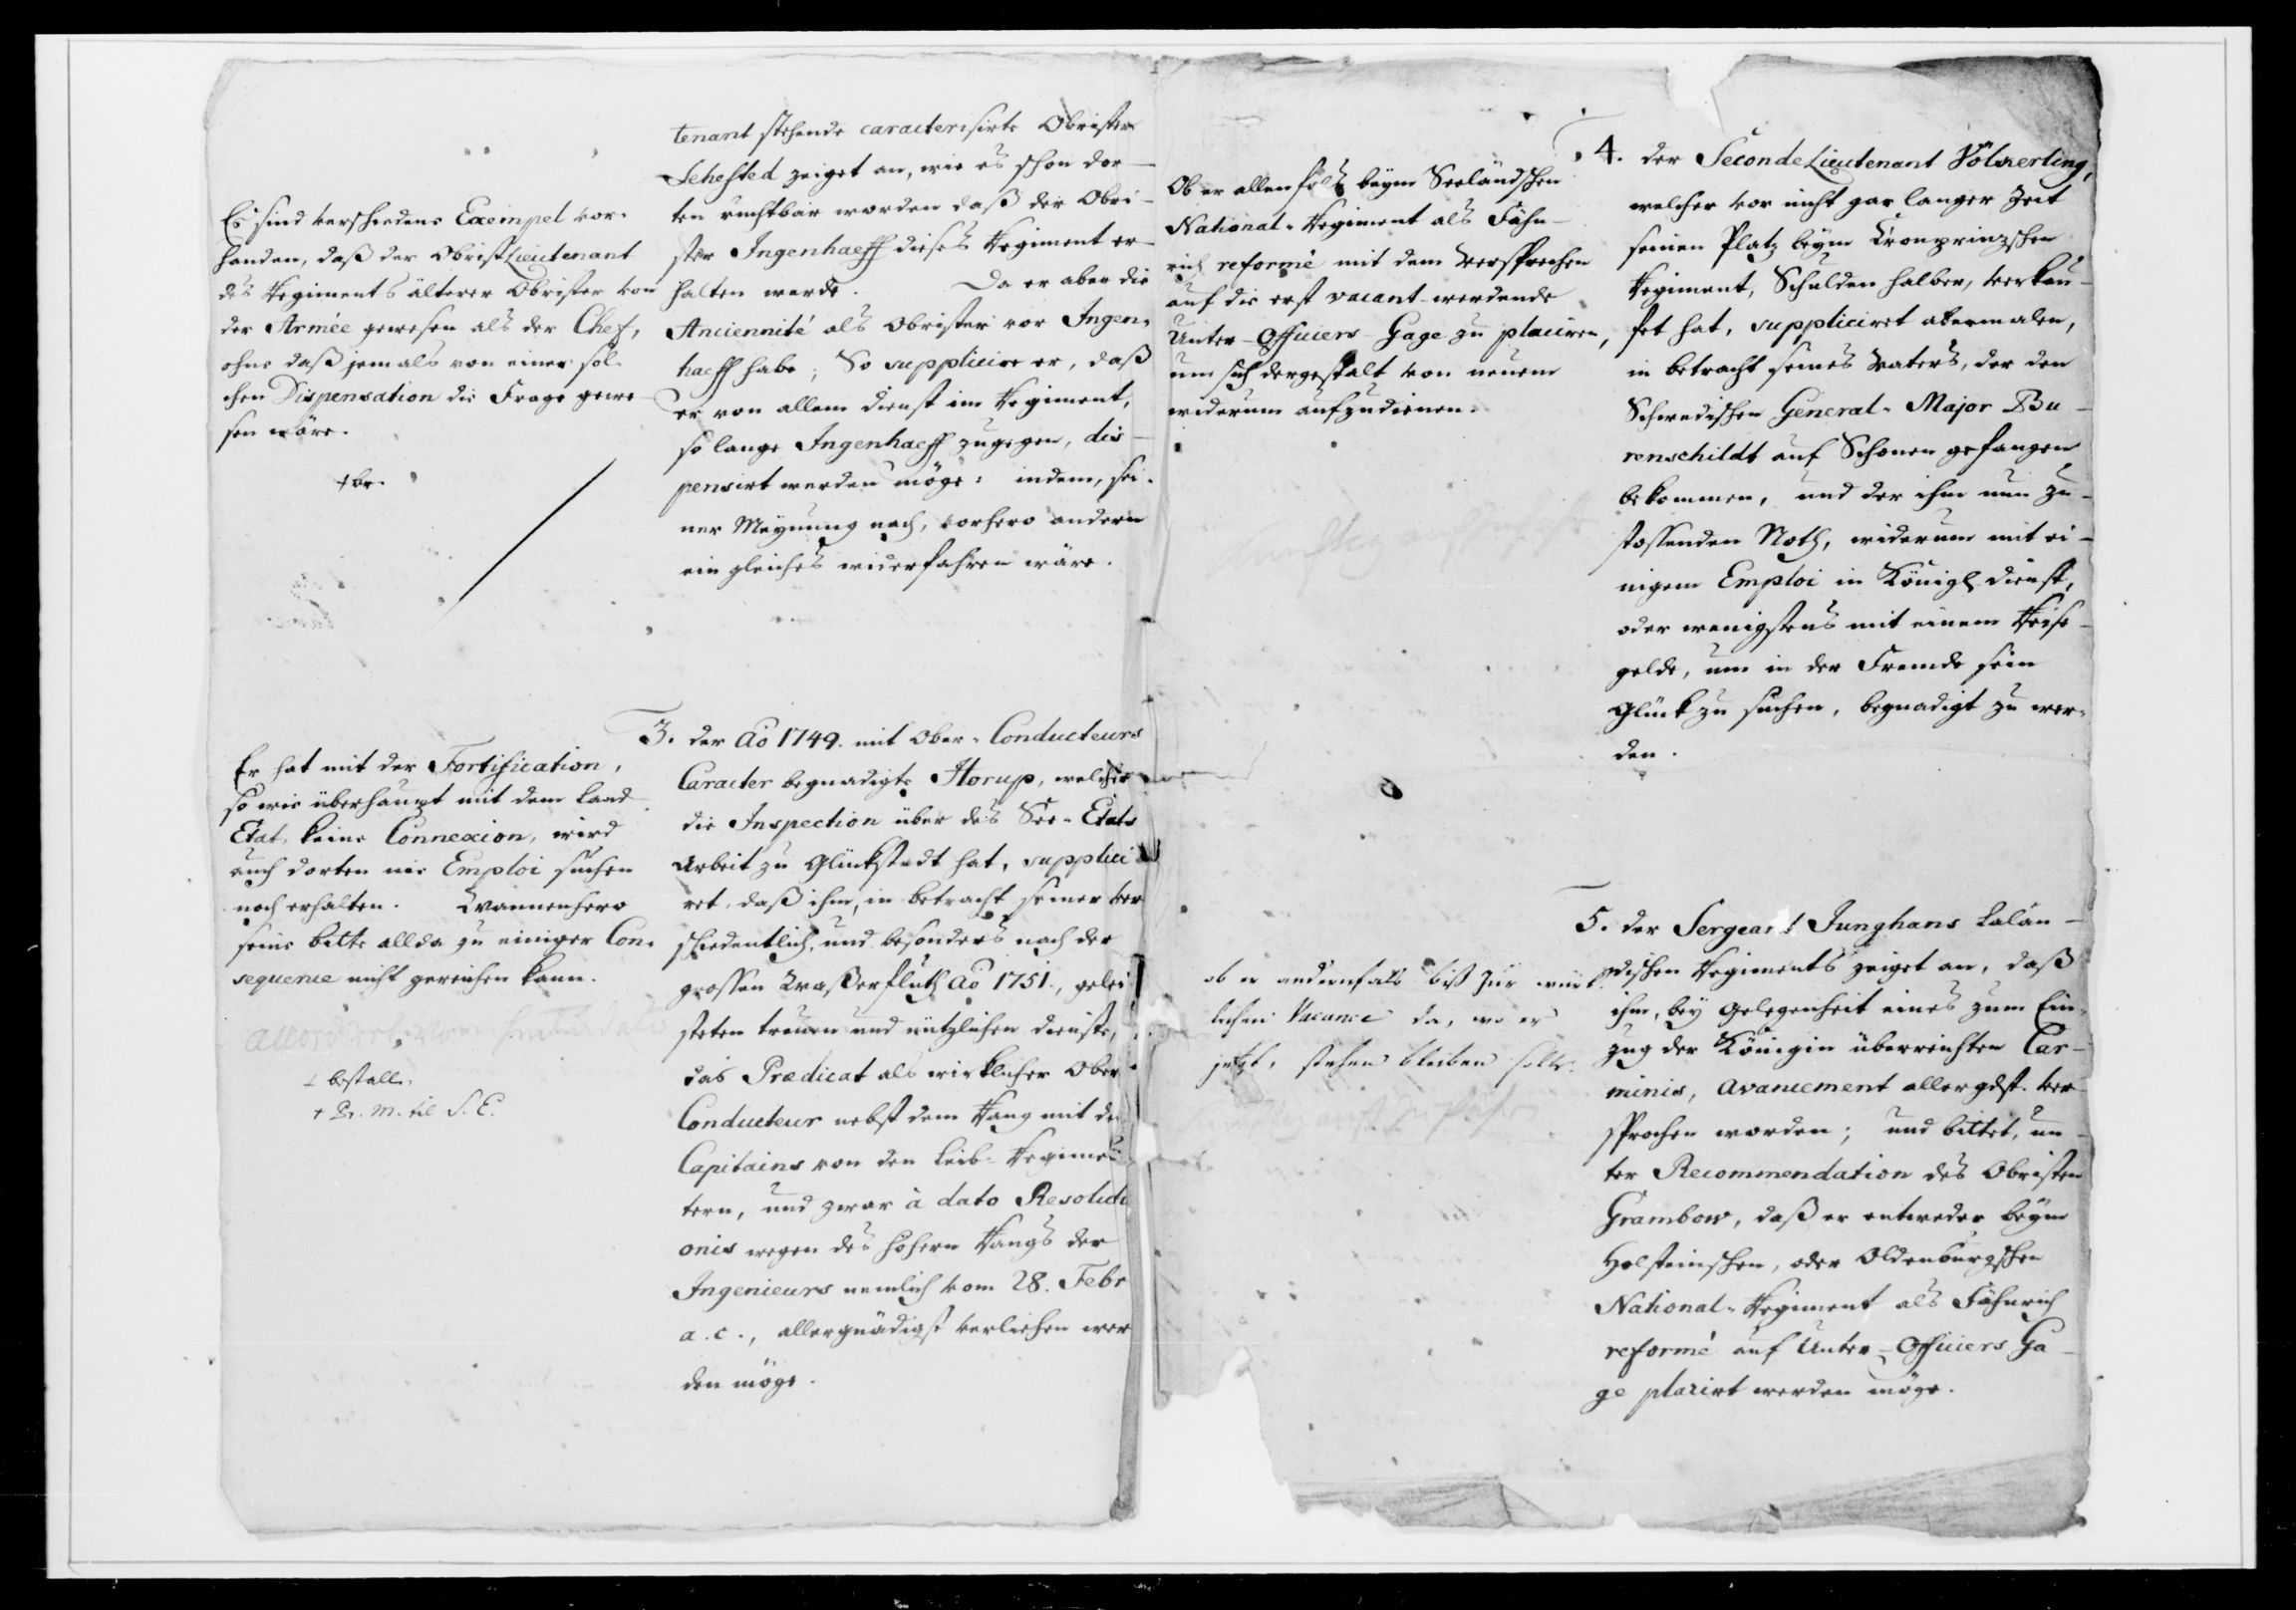 Es sind verschiedene Exempel vor-
handen, daß der Obrist Lieutenant
des Regiments älterer Obrister von
der Armée gewesen als der Chef,
ohne daß jemals von einer sol-
chen Dispensation die Frage gewe-
sen wäre.
+ br.
tenant stehende caracterisirte Obrister
Sehested zeiget an, wie es schon dor-
ten ruchtbar worden daß der Obri-
ster Ingenhaeff dieses Regiment er-
halten werde. Da er aber die
Anciennité als Obrister vor Ingen-
haeff habe; So supplicire er, daß
er von allem Dienst im Regiment,
so lange Ingenhaeff zugegen, dis-
pensirt werden möge: indem, sei-
ner Meynung nach, vorhero andern
ein gleiches wiederfahren wäre.
Er hat mit der Fortification,
so wie überhaupt mit dem Land
Etat, keine Connexion, wird
auch dorten nie Emploi suchen
noch erhalten. Wannenhero
seine bitte allda zu einiger Con-
sequence nicht gereichen kann.
+ bestall.
+ Pr. M. til S. E.
3. der Aō 1749. mit Ober-Conducteurs
Caracter begnadigte Storup, welcher
die Inspection über des See-Etats
Arbeit zu Glückstadt hat, supplici
ret, daß ihm, in betracht seiner ver
schiedentlich, und besonders nach der
grossen Waßerfluth Aō 1751., gelei
steten treuen und nützlichen Dienste,
das Prædicat als wirklicher Ober
Conducteur nebst dem Rang mit de
Capitains von den Leib-Regimen
tern, und zwar à dato Resoluti
onis wegen des höhern Rangs der
Ingenieurs nemlich vom 28. Febr
a. c., allergnädigst verliehen wer
den möge.
Ob er allenfals beym Seeländschen
National-Regiment als Fähn-
rich reformé mit dem Versprechen
auf die erst vacant werdende
Unter-Officiers-Gage zu placiren,
um sich dergestalt von neuem
wiederum aufzudienen.
4. der Seconde Lieutenant Völckerling,
welcher vor nicht gar langer Zeit
seinen Platz beym Kronprinzschen
Regiment, Schulden halber, verkau-
fet hat, suppliciret abermalen,
in betracht seines Vaters, der den
Schwedischen General-Major Bu-
renschildt auf Schonen gefangen
bekommen, und der ihm nun zu-
stossenden Noth, wiederum mit ei-
nigem Emploi in Königl. Dienst,
oder wenigstens mit einem Reise-
gelde, um in der Fremde sein
Glück zu suchen, begnadigt zu wer-
den.
ob er andernfals biß zur würk-
lichen Vacance da, wo er
jetzt, stehen bleiben solle.
5. der Sergeant Junghans Lalän-
dischen Regiments zeiget an, daß
ihm, bey Gelegenheit eines zum Ein-
zug der Königin überreichten Car-
minis, Avancement allergdst. ver-
sprochen worden; und bittet, un-
ter Recommendation des Obristen
Grambow, daß er entweder beym
Holsteinschen, oder Oldenburgschen
National-Regiment als Fähnrich
reformé auf Unter-Officiers Ga-
ge placirt werden möge.